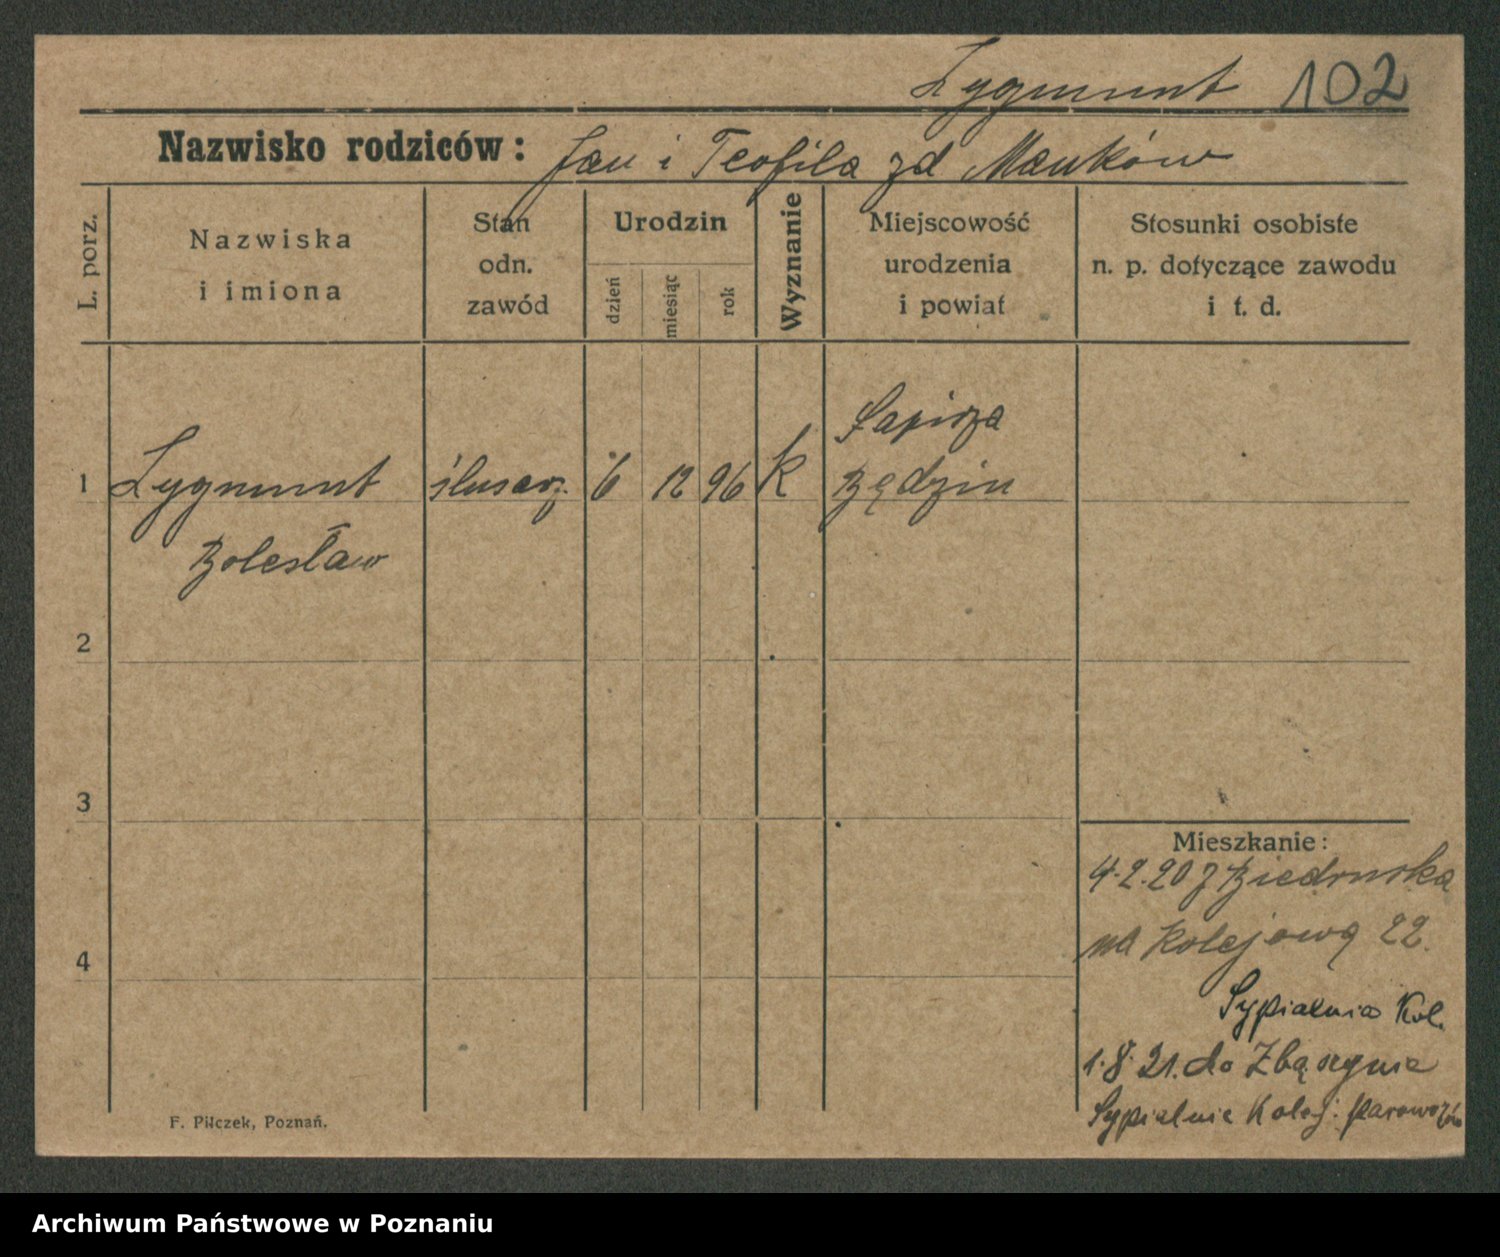 Zygmunt 102
Nazwisko rodziców: Jan i Teofila zd Mauków
L. porz.
Nazwiska
i imiona
Stan
odn.
zawód
Urodzin
dzień
miesiąc
rok
Wyznanie
Miejscowość
urodzenia
i powiat
Stosunki osobiste
n. p. dotyczące zawodu
i t. d.
1 Zygmunt ślusarz. 6 12 96 k
Bolesław
Będzin
2
3
4
Mieszkanie:
4.2.20 z Biedruska
na Kolejową 22.
Sypialnia Kol.
1.8.21. do Zbąszynia
Sypialnia Kolej. parowozów
F. Pilczek, Poznań.
Archiwum Państwowe w Poznaniu